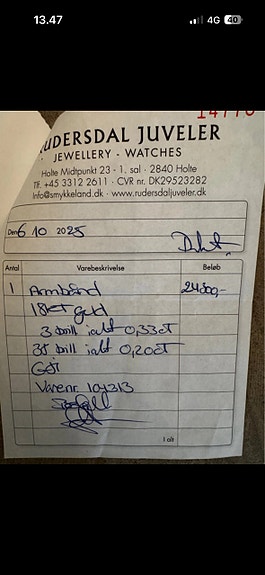 13.47
4G 40
RUDERSDAL JUVELER
JEWELLERY - WATCHES
Holte Midtpunkt 23 - 1. sal - 2840 Holte
Tlf. +45 3312 2611 - CVR nr. DK29523282
Info@smykkeland.dk - www.rudersdaljuveler.dk
Den 6 10 2025
Antal Varebeskrivelse Beløb
1 Armbånd
18kt guld
3 brill ialt 0,33ct
35 brill ialt 0,20ct
Varenr 104313
I alt